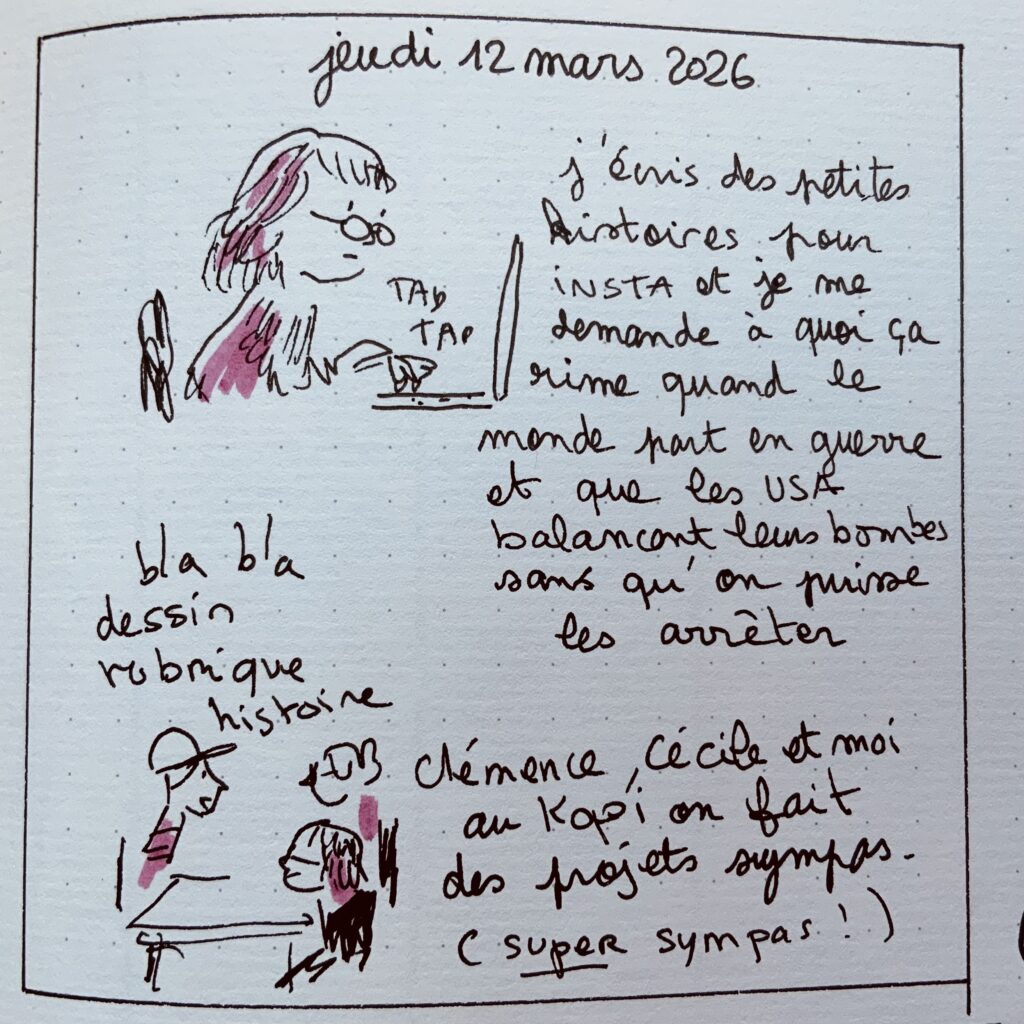 jeudi 12 mars 2026
j'écris des petites
histoires pour
INSTA et je me
demande à quoi ça
rime quand le
monde part en guerre
et que les USA
balancent leurs bombes
sans qu'on puisse
les arrêter
TAP
TAP
bla bla
dessin
rubrique
histoire
Clémence, Cécile et moi
au Kapé on fait
des projets sympas.
(super sympas !)